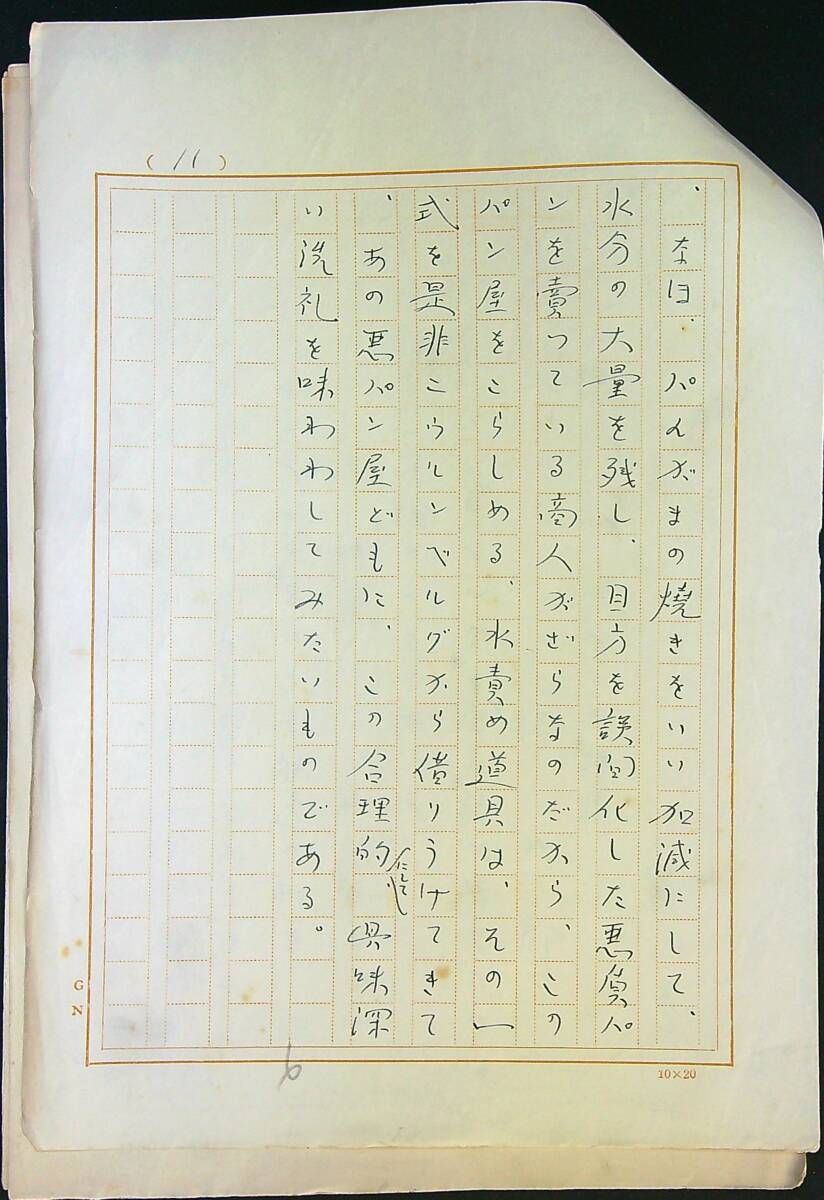 (11)
、なほ、パんがまの焼きをいい加減にして、
水分の大量を残し、目方を誤間化した悪質パ
ンを賣つている商人がざらなのだから、この
パン屋をこらしめる、水責め道具は、その一
式を是非ニウルンベルグから借りうけてきて
、あの悪パン屋どもに、この合理的にして興味深
い洗礼を味わわしてみたいものである。
G N
10×20
6